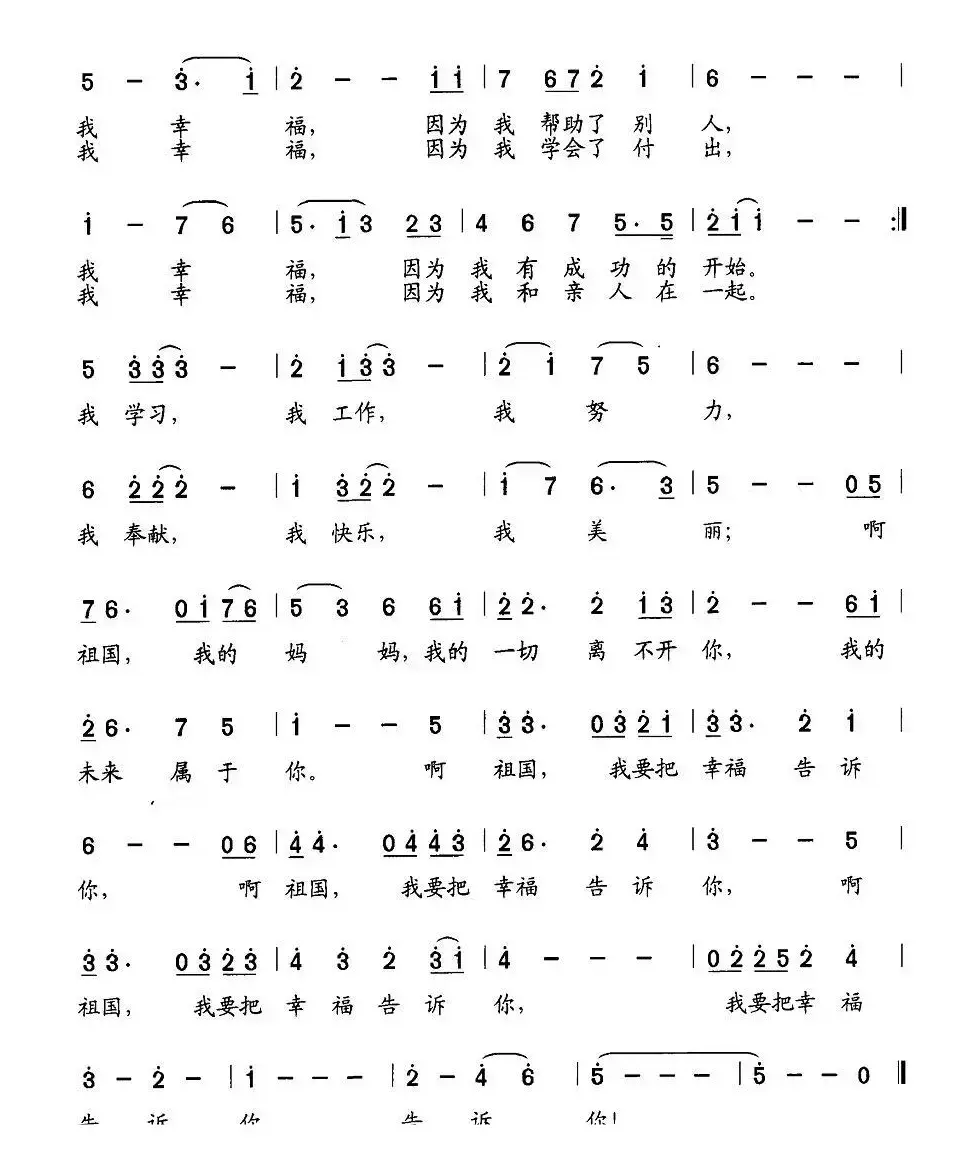 5 – 3̇. i̲̇ | 2̇ – – i̲̇ i̲̇ | 7 6̲ 7̲ 2̇ i̇ | 6 – – – |
我 幸 福, 因为 我 帮助了 别 人,
我 幸 福, 因为 我 学会了 付 出,
i̇ – 7 6 | 5. i̇ 3 2 3 | 4 6 7 5. 5 | 2̇ i̇ i̇ – – :‖
我 幸 福, 因为 我 有 成 功 的 开始。
我 幸 福, 因为 我 和 亲 人 在 一起。
5 3̇ 3̇ 3̇ – | 2̇ i̇ 3̇ 3̇ – | 2̇ i̇ 7 5 | 6 – – – |
我 学习, 我 工作, 我 努 力,
6 2̇ 2̇ 2̇ – | i̇ 3̇ 2̇ 2̇ – | i̇ 7 6. 3 | 5 – – 0 5 |
我 奉献, 我 快乐, 我 美 丽; 啊
7 6. 0 i̇ 7 6 | 5 3 6 6 i̇ | 2̇ 2̇. 2̇ i̇ 3̇ | 2̇ – – 6 i̇ |
祖国, 我的 妈 妈,我的 一切 离 不开 你, 我的
2̇ 6. 7 5 | i̇ – – 5 | 3̇ 3̇. 0 3̇ 2̇ i̇ | 3̇ 3̇. 2̇ i̇ |
未来 属 于 你。 啊 祖国, 我要把 幸福 告 诉
6 – – 0 6 | 4̇ 4̇. 0 4̇ 4̇ 3̇ | 2̇ 6. 2̇ 4̇ | 3̇ – – 5 |
你, 啊 祖国, 我要把 幸福 告 诉 你, 啊
3̇ 3̇. 0 3̇ 2̇ 3̇ | 4̇ 3̇ 2̇ 3̇ i̇ | 4̇ – – – | 0 2̇ 2̇ 5 2̇ 4̇ |
祖国, 我要把 幸 福 告 诉 你, 我要把幸 福
3̇ – 2̇ – | i̇ – – – | 2̇ – 4̇ 6̇ | 5̇ – – – | 5̇ – – 0 ‖
告 诉 你 告 诉 你!